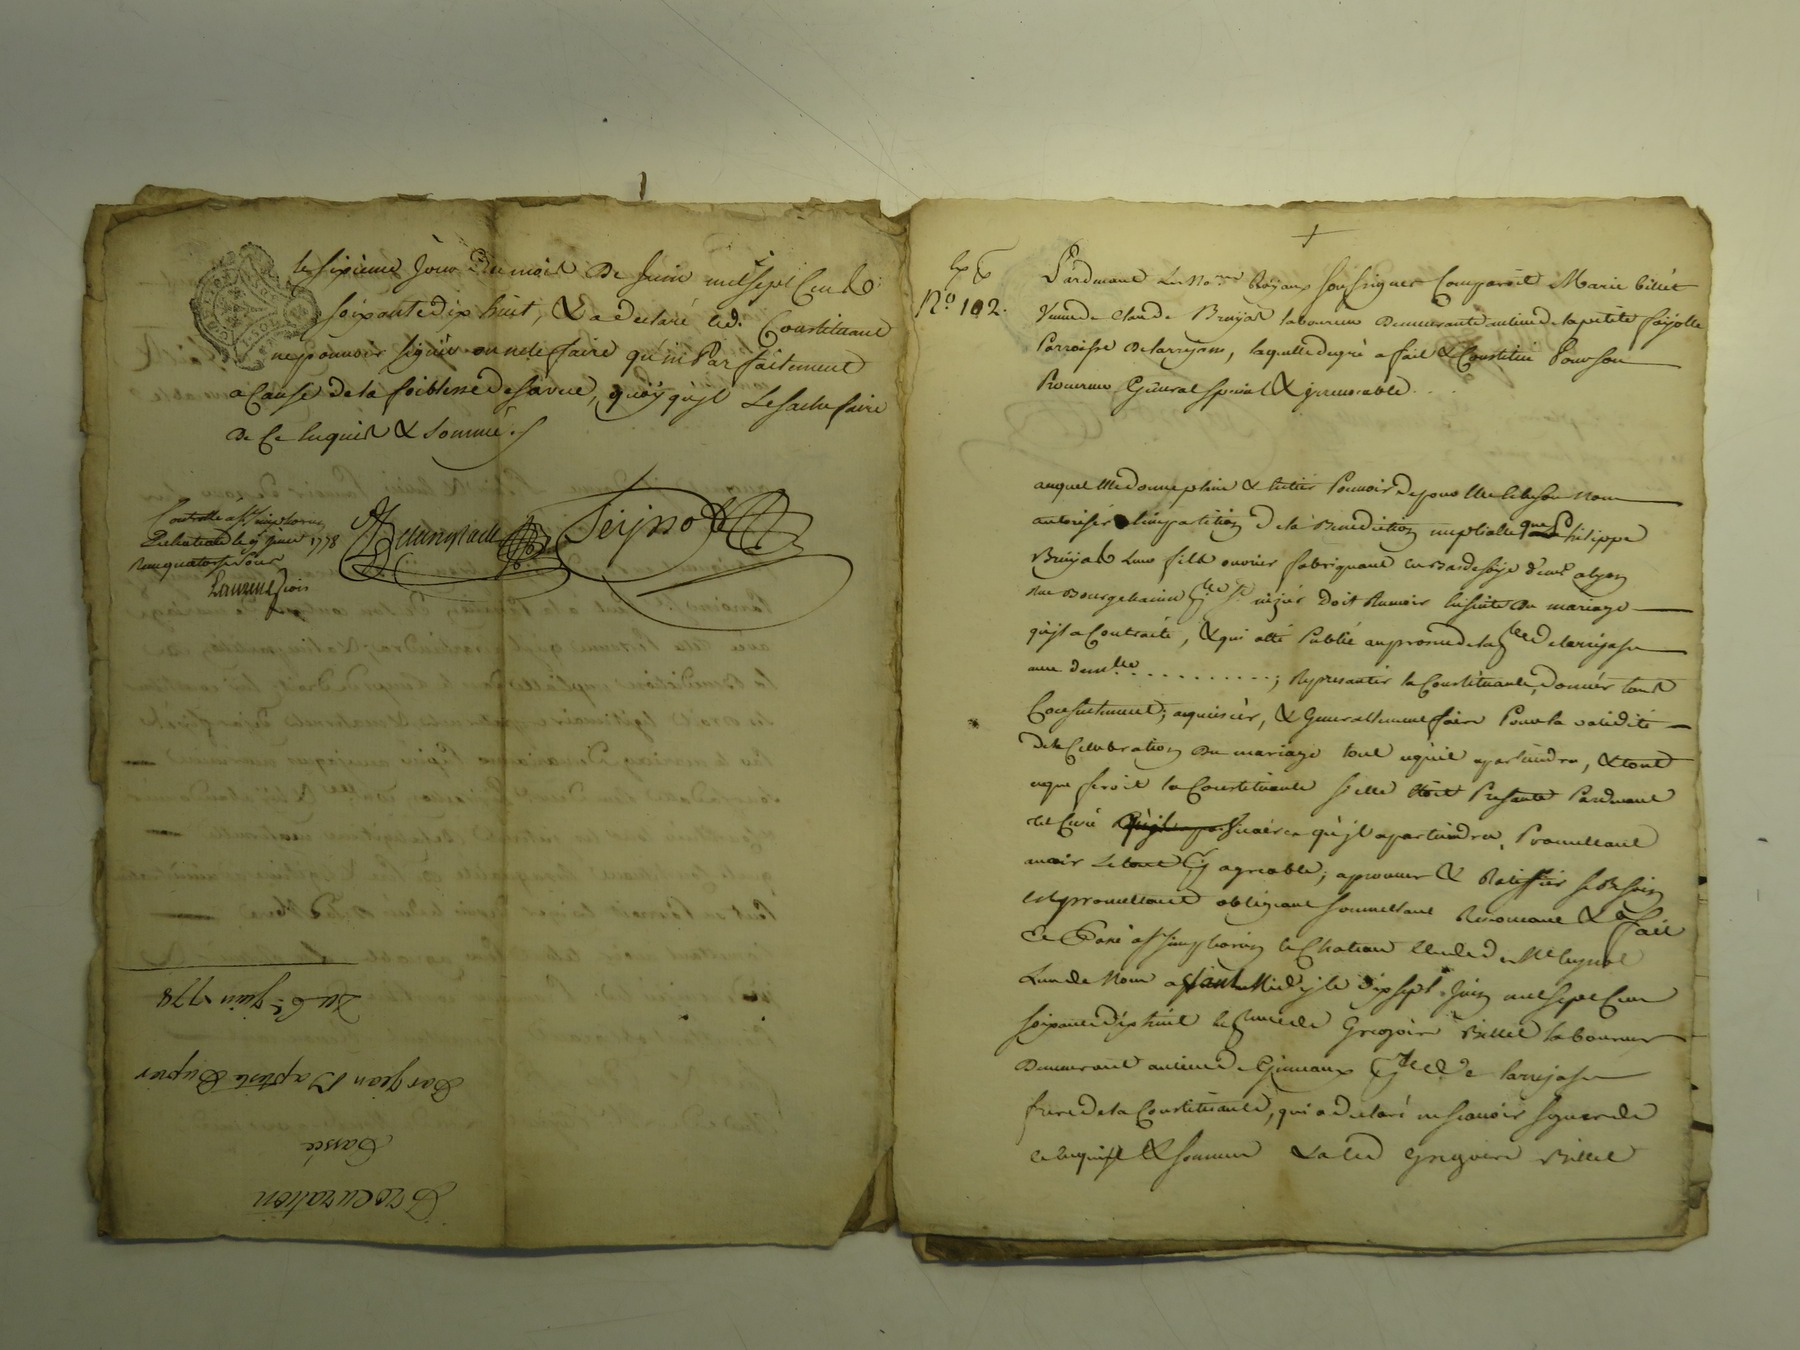 le sixieme Jour du mois De Juin mil sept Cent
soixante dix huit, & a declaré led. Constituant
ne pouvoir signer ou ne le faire qu'im Parfaitement
a Cause de la foiblesse de sa vue, quoy qu'jl Le sache faire
De Ce Enquis & Sommé ./
Controllé a St simphorien
Le chateau le 9e juin 1778
Reçu quatorze sous
Laurenson
Procuration
Passée
Par Jean Baptiste Dupier
Du 6e Juin 1778
No. 102.
Pardevant Les Nores Royaux Soussignés Comparoit Marie billet
Veuve de Claude Bruyas laboureur Demeurante au lieu de la petite fayolle
Parroisse De larrajasse, laquelle de gré a fait & Constitué Pour son
Procureur General special & jrrevocable
auquel Elle donne plein & Entier Pouvoir de pour Elle & En son Nom
autoriser l'impartition De la Benediction nuptialle que Philippe
Bruyas Leur fils ouvrier fabriquant En Bas de soye
Rue Bourgchanin St nizier Doit Recevoir En suitte Du mariage
qu'jl a Contracté, & qui a été Publié au prosne de la de larrajasse
avec demlle . . . . . . . . . . . ; Representer la Constituante, donner tous
Consentement, acquiescer, & Generallement faire Pour la validité
de la Celebration Du mariage tout ce qu'il apartiendra, & tout
ce que feroit la Constituante si elle étoit Presente Pardevant
le Curé qu'jl apartiendra, Promettant
avoir Le tout agreable, aprouver & Ratiffier si Besoin
est promettant obligeant soumettant Renonceant & fait
& Passé a St simphorien le Chateau
L'un de Nous avant Midy le dix sept Juin mil sept Cent
soixante dix huit En presence de Gregoire Billet laboureur
Demeurant au lieu de de larrajasse
frere de la Constituante, qui a declaré ne scavoir signer de
ce Enquise & sommée & a led Gregoire Billet